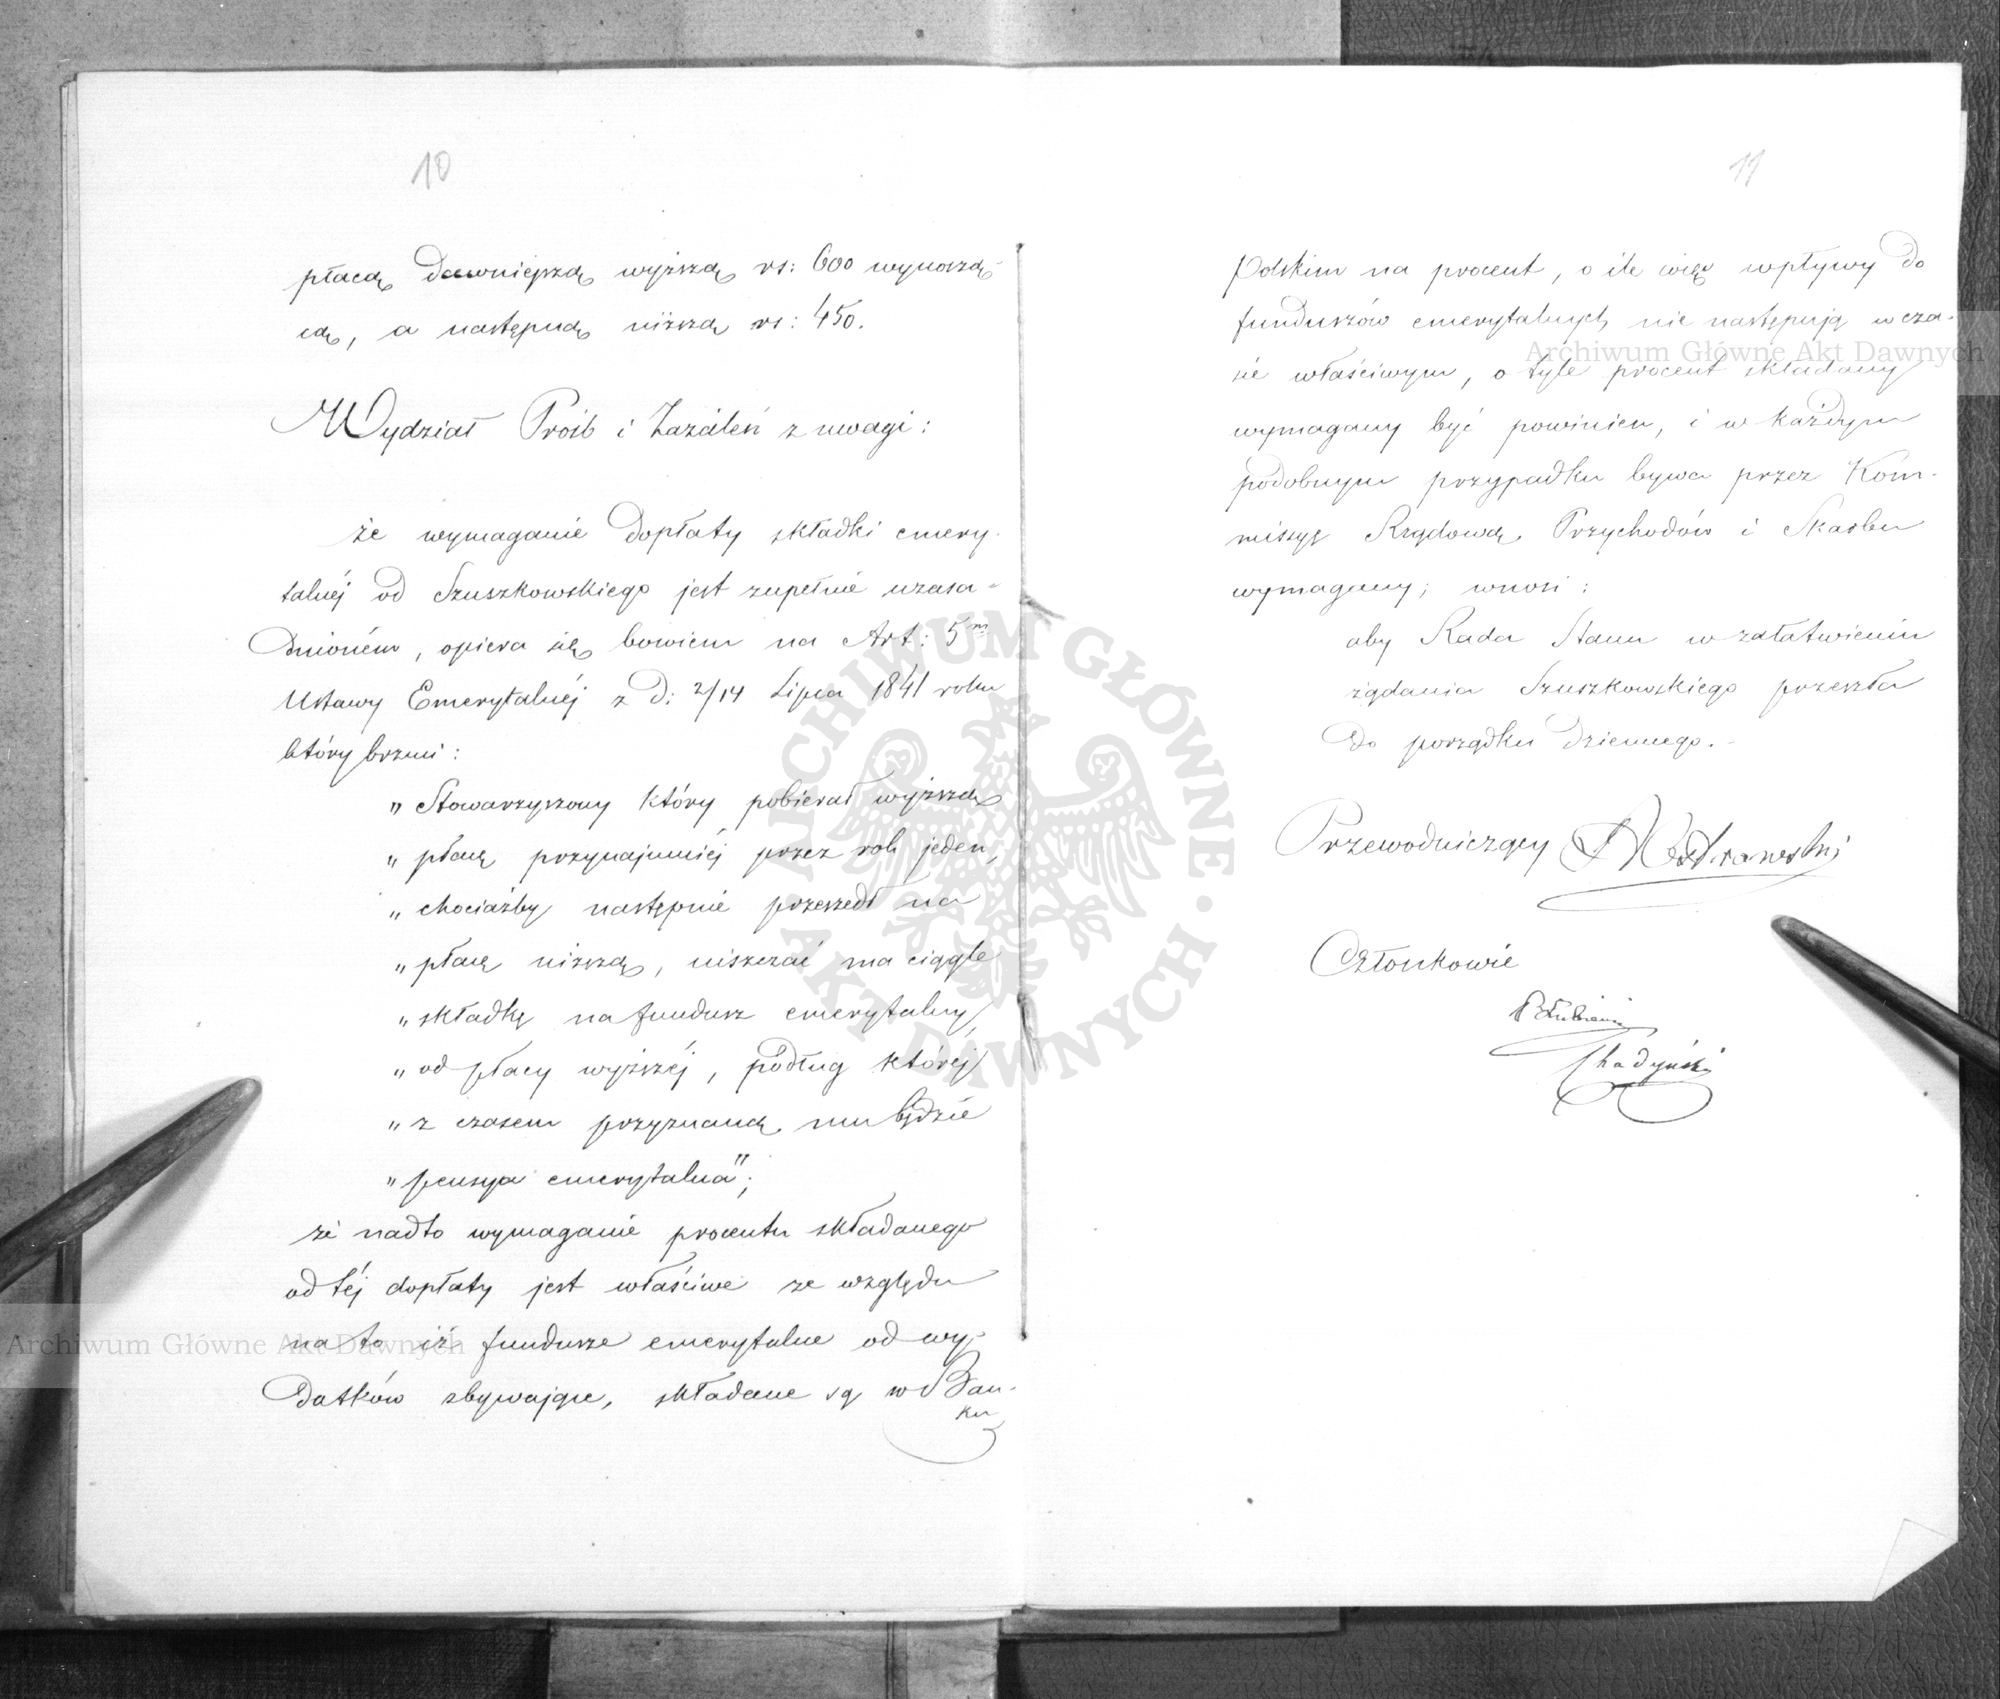 10
płacą dawniejszą wyższą rs: 600 wynoszą-
cą, a następną niższą rs: 450.
Wydział Próśb i Zażaleń z uwagi:
że wymaganie dopłaty składki emery-
talnéj od Szuszkowskiego jest zupełnie uzasa-
dnioném, opiera się bowiem na Art: 5m
Ustawy Emerytalnéj z d: 2/14 Lipca 1841 roku
który brzmi:
„Stowarzyszony który pobierał wyższą
„płacę przynajmniéj przez rok jeden,
„chociażby następnie przeszedł na
„płacę niższą, uiszczać ma ciągle
„składkę na fundusz emerytalny
„od płacy wyższéj, podług któréj
„z czasem przyznaną mu będzie
„pensya emerytalna";
że nadto wymaganie procentu składanego
od téj dopłaty jest właściwe ze względu
na to iż fundusze emerytalne od wy-
datków zbywające, składane są w Ban-
ku
11
Polskim na procent, o ile więc wpływy do
funduszów emerytalnych nie następują w cza-
sie właściwym, o tyle procent składany
wymagany być powinien, i w każdym
podobnym przypadku bywa przez Kom-
missyę Rządową Przychodów i Skarbu
wymagany; wnosi:
aby Rada Stanu w załatwieniu
żądania Szuszkowskiego przeszła
do porządku dziennego.-
Przewodniczący
Członkowie
Chadyński
Archiwum Główne Akt Dawnych
Archiwum Główne Akt Dawnych
ARCHIWUM GŁÓWNE · AKT DAWNYCH ·